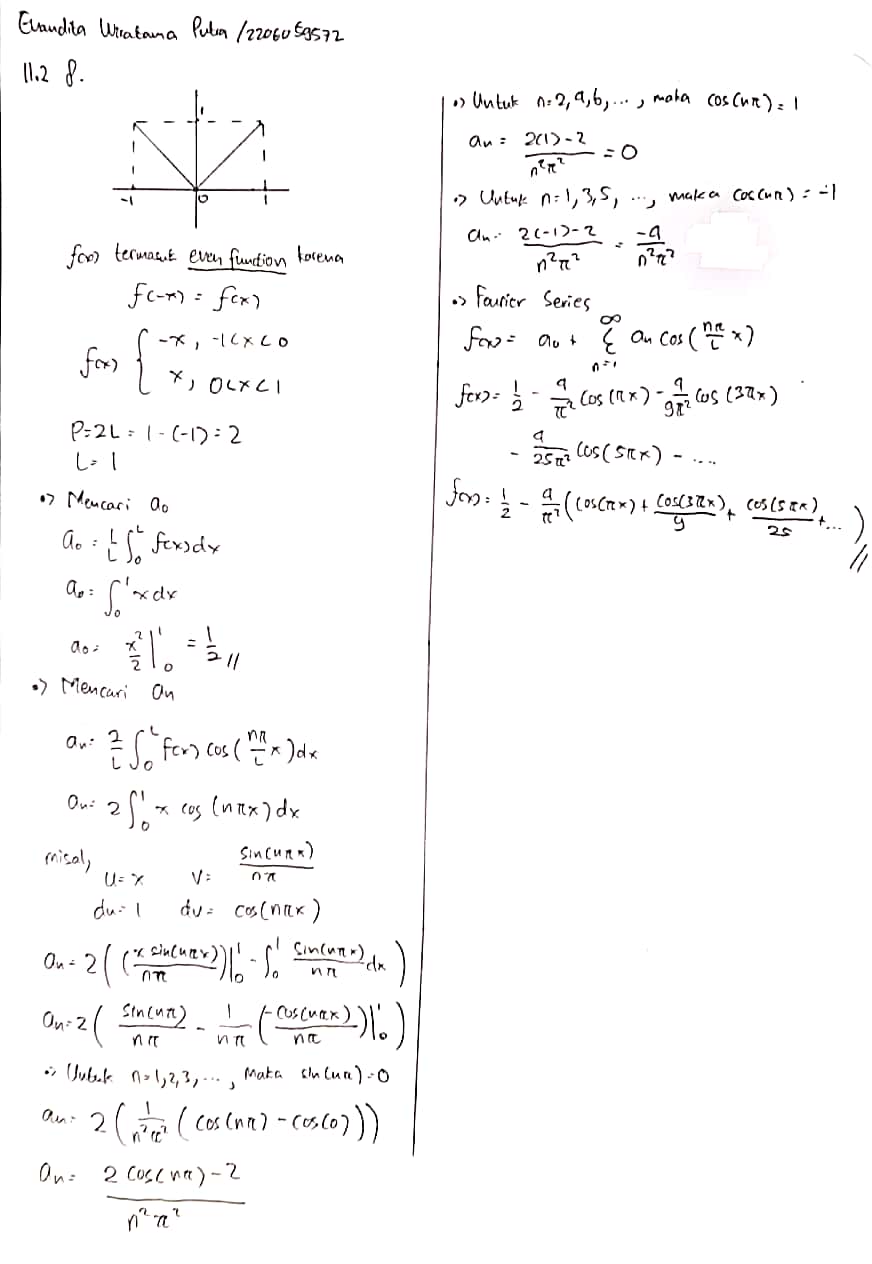 Evandita Wiratama Putra / 2206059572
11.2 8.
1
-1 0 1
f(x) termasuk even function karena
f(-x) = f(x)
f(x) { -x, -1<x<0
x, 0<x<1
P=2L = 1-(-1) = 2
L = 1
•> Mencari a₀
a₀ = 1/L ∫₀ᴸ f(x)dx
a₀ = ∫₀¹ x dx
a₀ = x²/2 |₀¹ = 1/2 //
•> Mencari an
an = 2/L ∫₀ᴸ f(x) cos(nπ/L x)dx
an = 2 ∫₀¹ x cos (nπx)dx
misal,
u = x v = sin(nπx)/nπ
du = 1 dv = cos(nπx)
an = 2((x sin(nπx)/nπ)|₀¹ - ∫₀¹ sin(nπx)/nπ dx)
an = 2(sin(nπ)/nπ - 1/nπ (-cos(nπx)/nπ)|₀¹)
•> Untuk n=1,2,3,..., maka sin(nπ)=0
an = 2(1/n²π² (cos(nπ) - cos(0)))
an = 2 cos(nπ) - 2 / n²π²
•> Untuk n=2,4,6,..., maka cos(nπ) = 1
an = 2(1)-2 / n²π² = 0
•> Untuk n=1,3,5, ..., maka cos(nπ) = -1
an = 2(-1)-2 / n²π² = -4/n²π²
•> Fourier Series
f(x) = a₀ + Σₙ₌₁^∞ an cos(nπ/L x)
f(x) = 1/2 - 4/π² cos(πx) - 4/9π² cos(3πx)
- 4/25π² cos(5πx) - ....
f(x) = 1/2 - 4/π² (cos(πx) + cos(3πx)/9 + cos(5πx)/25 + ...) //